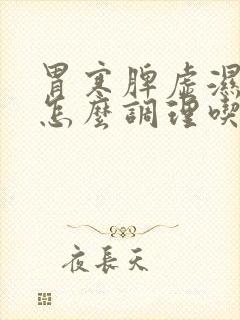 胃寒脾虛濕
怎麼調理喫
夜長天